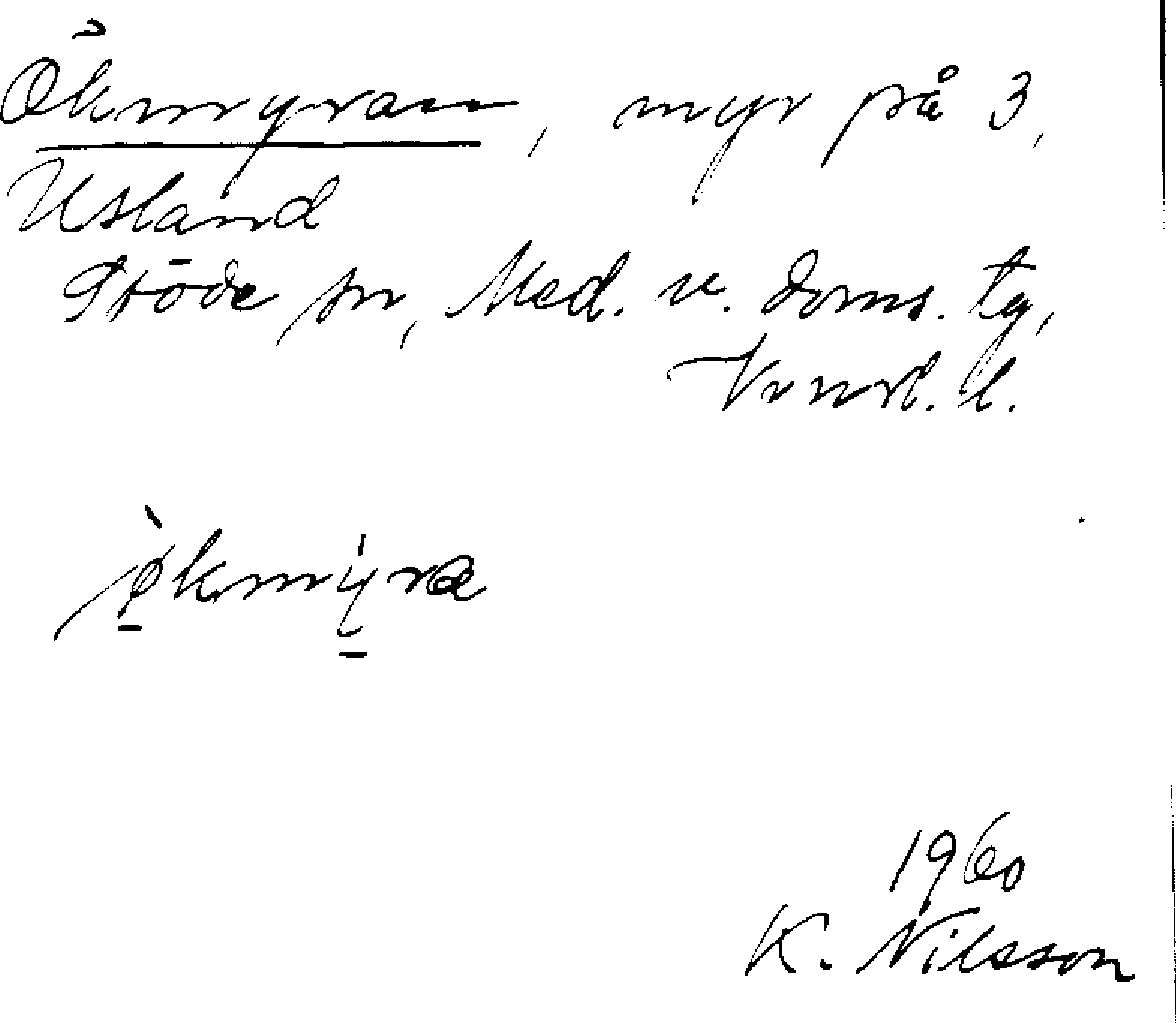 Ökmyran, myr på 3,
Usland
Stöde sn, Med. v. doms. tg,
Vrnrl. l.
økmyra
1960
K. Nilsson